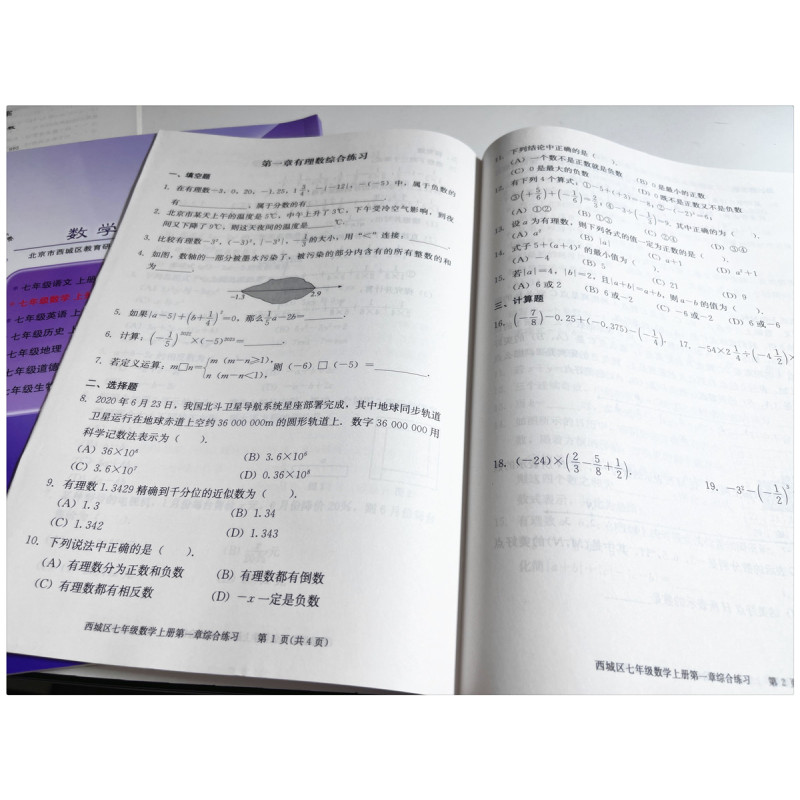 数学
北京市西城区教育研
七年级语文 上册
七年级数学 上
七年级英语 上
七年级历史 上
七年级地理
七年级道德
七年级生物
第一章有理数综合练习
一、填空题
有______,属于分数的有______.
2. 北京市某天上午的温度是5℃,中午上升了3℃,下午受冷空气影响,到夜
间又下降了9℃,则这天夜间的温度是______℃.
4. 如图,数轴的一部分被墨水污染了,被污染的部分内含有的所有整数的和
为______.
-1.3 2.9
5. 如果|a-5|+(b+1/4)²=0,那么1/5a-2b=______.
6. 计算:(-1/5)²⁰²²×(-5)²⁰²¹=______.
7. 若定义运算:m□n={m (m-n≥1), n (m-n<1), 则(-6)□(-5)=______.
二、选择题
8. 2020年6月23日,我国北斗卫星导航系统星座部署完成,其中地球同步轨道
卫星运行在地球赤道上空约36 000 000m的圆形轨道上. 数字36 000 000用
科学记数法表示为( ).
(A) 36×10⁶ (B) 3.6×10⁶
(C) 3.6×10⁷ (D) 0.36×10⁸
9. 有理数1.3429精确到千分位的近似数为( ).
(A) 1.3 (B) 1.34
(C) 1.342 (D) 1.343
10. 下列说法中正确的是( ).
(A) 有理数分为正数和负数 (B) 有理数都有倒数
(C) 有理数都有相反数 (D) -x一定是负数
西城区七年级数学上册第一章综合练习 第1页(共4页)
11. 下列结论中正确的是( ).
(A) 一个数不是正数就是负数 (B) 0是最小的正数
(C) 0是最大的负数 (D) 0既不是正数又不是负数
(A) ①② (B) ①③ (C) ②④ (D) ③④
13. 设a为有理数,则下列各式的值一定为正数的是( ).
(A) a² (B) |a| (C) a+1 (D) a²+1
14. 式子5+(a+4)²的最小值为( ).
(A) -4 (B) 5 (C) 21 (D) 9
15. 若|a|=4,|b|=2,且|a+b|=a+b,则a-b的值为( ).
(A) 6或2 (B) 6或-2 (C) -6或-2 (D) 6或-6
三、计算题
16. (-7/8)-0.25+(-0.375)-(-1/4). 17. -54×2 1/4÷(-4 1/2)×
18. (-24)×(2/3-5/8+1/2). 19. -3²-(-1/2)³
西城区七年级数学上册第一章综合练习 第2